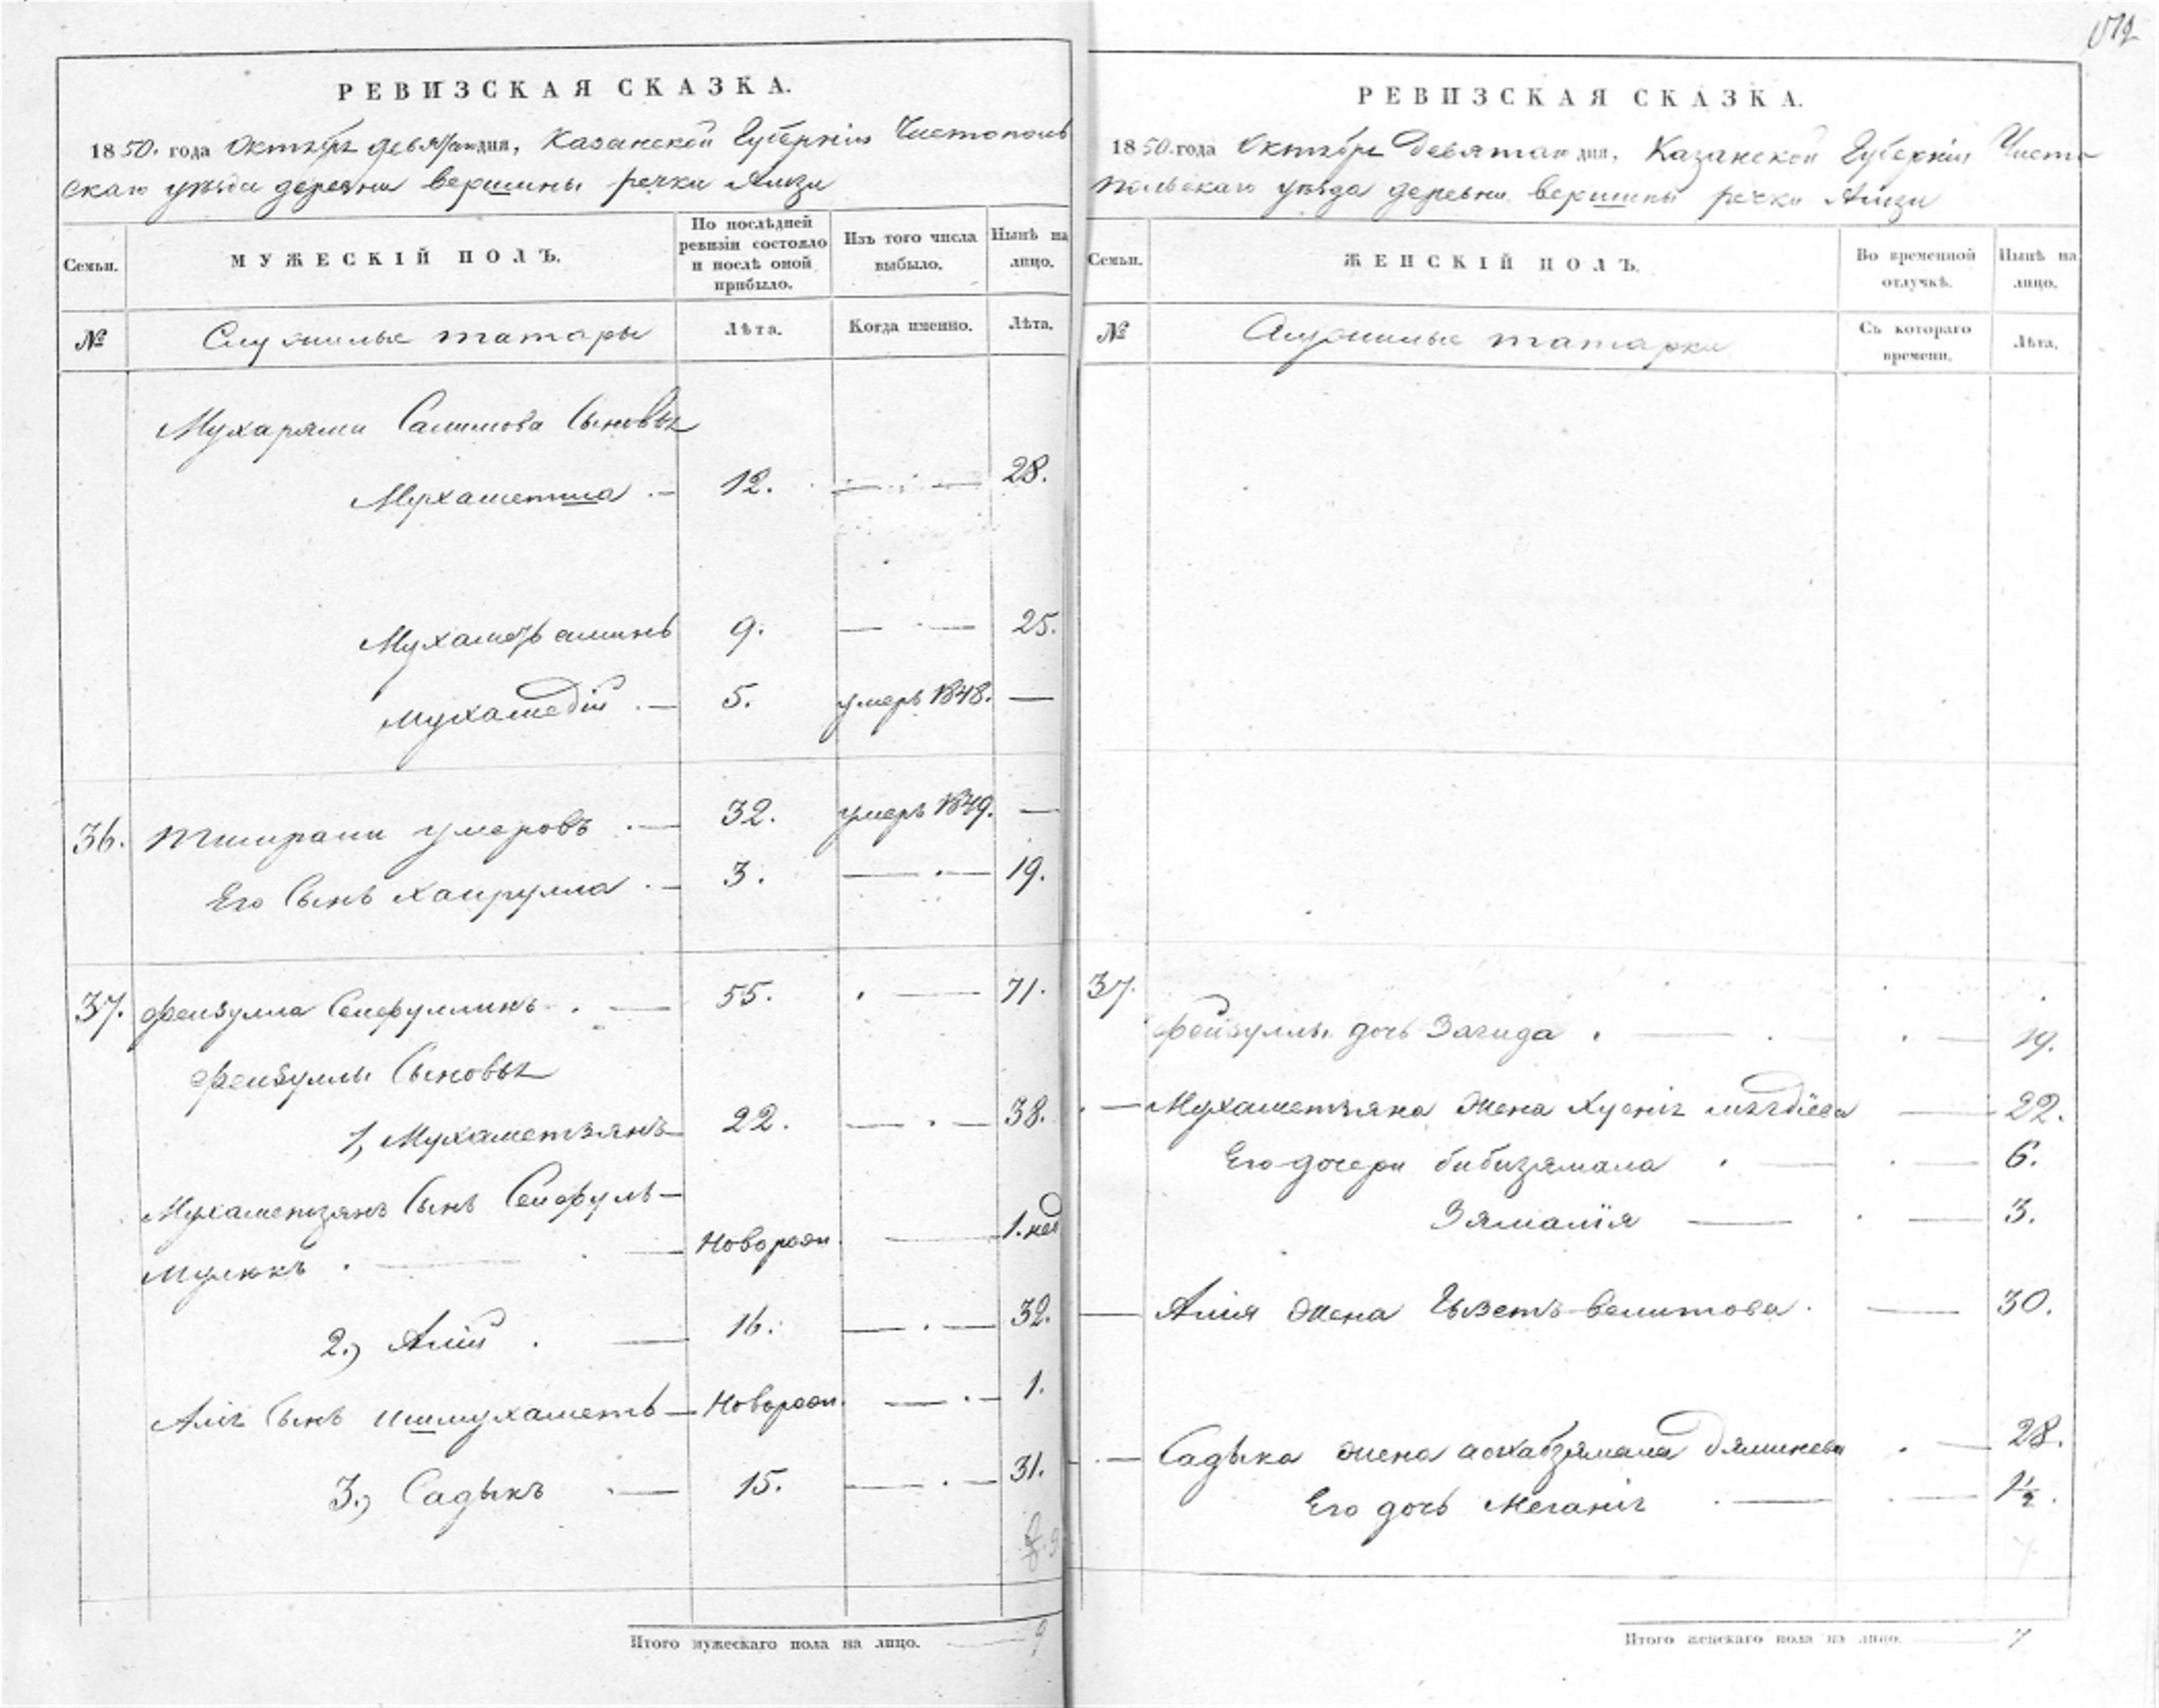 РЕВИЗСКАЯ СКАЗКА.
1850. года Октября девятаго дня, Казанской Губернiи Чистополь
скаго уѣзда деревни вершины речки Амзи
Семьи.
МУЖЕСКІЙ ПОЛЪ.
По послѣдней ревизіи состояло и послѣ оной прибыло.
Изъ того числа выбыло.
Нынѣ на лицо.
№
Служилые татары
Лѣта.
Когда именно.
Лѣта.
Мухарями Салимова Сыновья
Мухаметша . — 12. — 28.
Мухаметъ аминь 9. — 25.
Мухамедiй . — 5. умеръ 1848. —
36. умеровъ . — 32. умеръ 1849. —
Его Сынъ хайрулла . — 3. — . — 19.
37. Фейзулла Сейфуллинъ . — 55. . — 71.
Фейзуллы Сыновья
1, Мухаметзянъ — 22. — . — 38.
Мухаметзянъ Сынъ Сейфуль —
Мулюкъ . — Новорож. — 1. нед
2.) Алiй . — 16. — . — 32.
Алiя Сынъ ишмухаметъ — Новорож. — . — 1.
3.) Садыкъ . — 15. — . — 31.
Итого мужескаго пола на лицо. — 9
РЕВИЗСКАЯ СКАЗКА.
1850. года Октября Девятаго дня, Казанской Губернiи Чисто
польскаго уѣзда деревни вершины речки Амзи
Семьи.
ЖЕНСКІЙ ПОЛЪ.
Во временной отлучкѣ.
Нынѣ на лицо.
№
Служилые татарки
Съ котораго времени.
Лѣта.
37.
Фейзуллы дочь Загида . — . — 19.
. — Мухаметзяна жена Хуснiя — 22.
Его дочери бибизямала . — . — 6.
Зямалїя — . — 3.
— Алия жена Гызетъ — 30.
. — Садыка жена асхабзямала . — 28.
Его дочь Меганiя . — . — 1½.
Итого женскаго пола на лицо. — 7